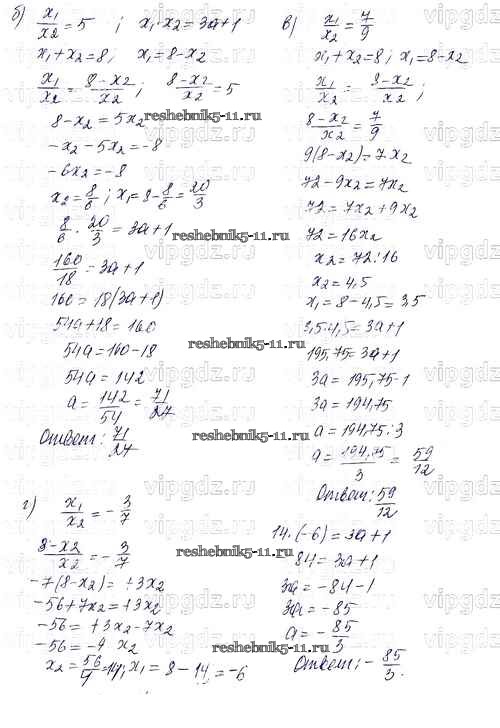 б) x₁/x₂ = 5 ; x₁·x₂ = 3a+1
x₁+x₂=8, x₁=8-x₂
x₁/x₂ = 8-x₂/x₂ ; 8-x₂/x₂ = 5
8-x₂ = 5x₂
-x₂-5x₂=-8
-6x₂=-8
x₂=8/6 ; x₁=8-8/6=20/3
8/6 · 20/3 = 3a+1
160/18 = 3a+1
160=18(3a+1)
54a+18=160
54a=160-18
54a=142
a = 142/54 = 71/27
Ответ: 71/27
в) x₁/x₂ = 7/9
x₁+x₂=8; x₁=8-x₂
x₁/x₂ = 8-x₂/x₂ ;
8-x₂/x₂ = 7/9
9(8-x₂)=7x₂
72-9x₂=7x₂
72=7x₂+9x₂
72=16x₂
x₂=72:16
x₂=4,5
x₁=8-4,5=3,5
3,5·4,5=3a+1
195,75=3a+1
3a=195,75-1
3a=194,75
a=194,75:3
a=194,75/3 = 59/12
Ответ: 59/12
г) x₁/x₂ = -3/7
8-x₂/x₂ = -3/7
-7(8-x₂)=+3x₂
-56+7x₂=+3x₂
-56=+3x₂-7x₂
-56=-4 x₂
x₂=56/4=14; x₁=8-14=-6
14·(-6)=3a+1
84=3a+1
3a=-84-1
3a=-85
a=-85/3
Ответ: -85/3.
reshebnik5-11.ru
reshebnik5-11.ru
reshebnik5-11.ru
reshebnik5-11.ru
reshebnik5-11.ru
reshebnik5-11.ru
vipgdz.ru